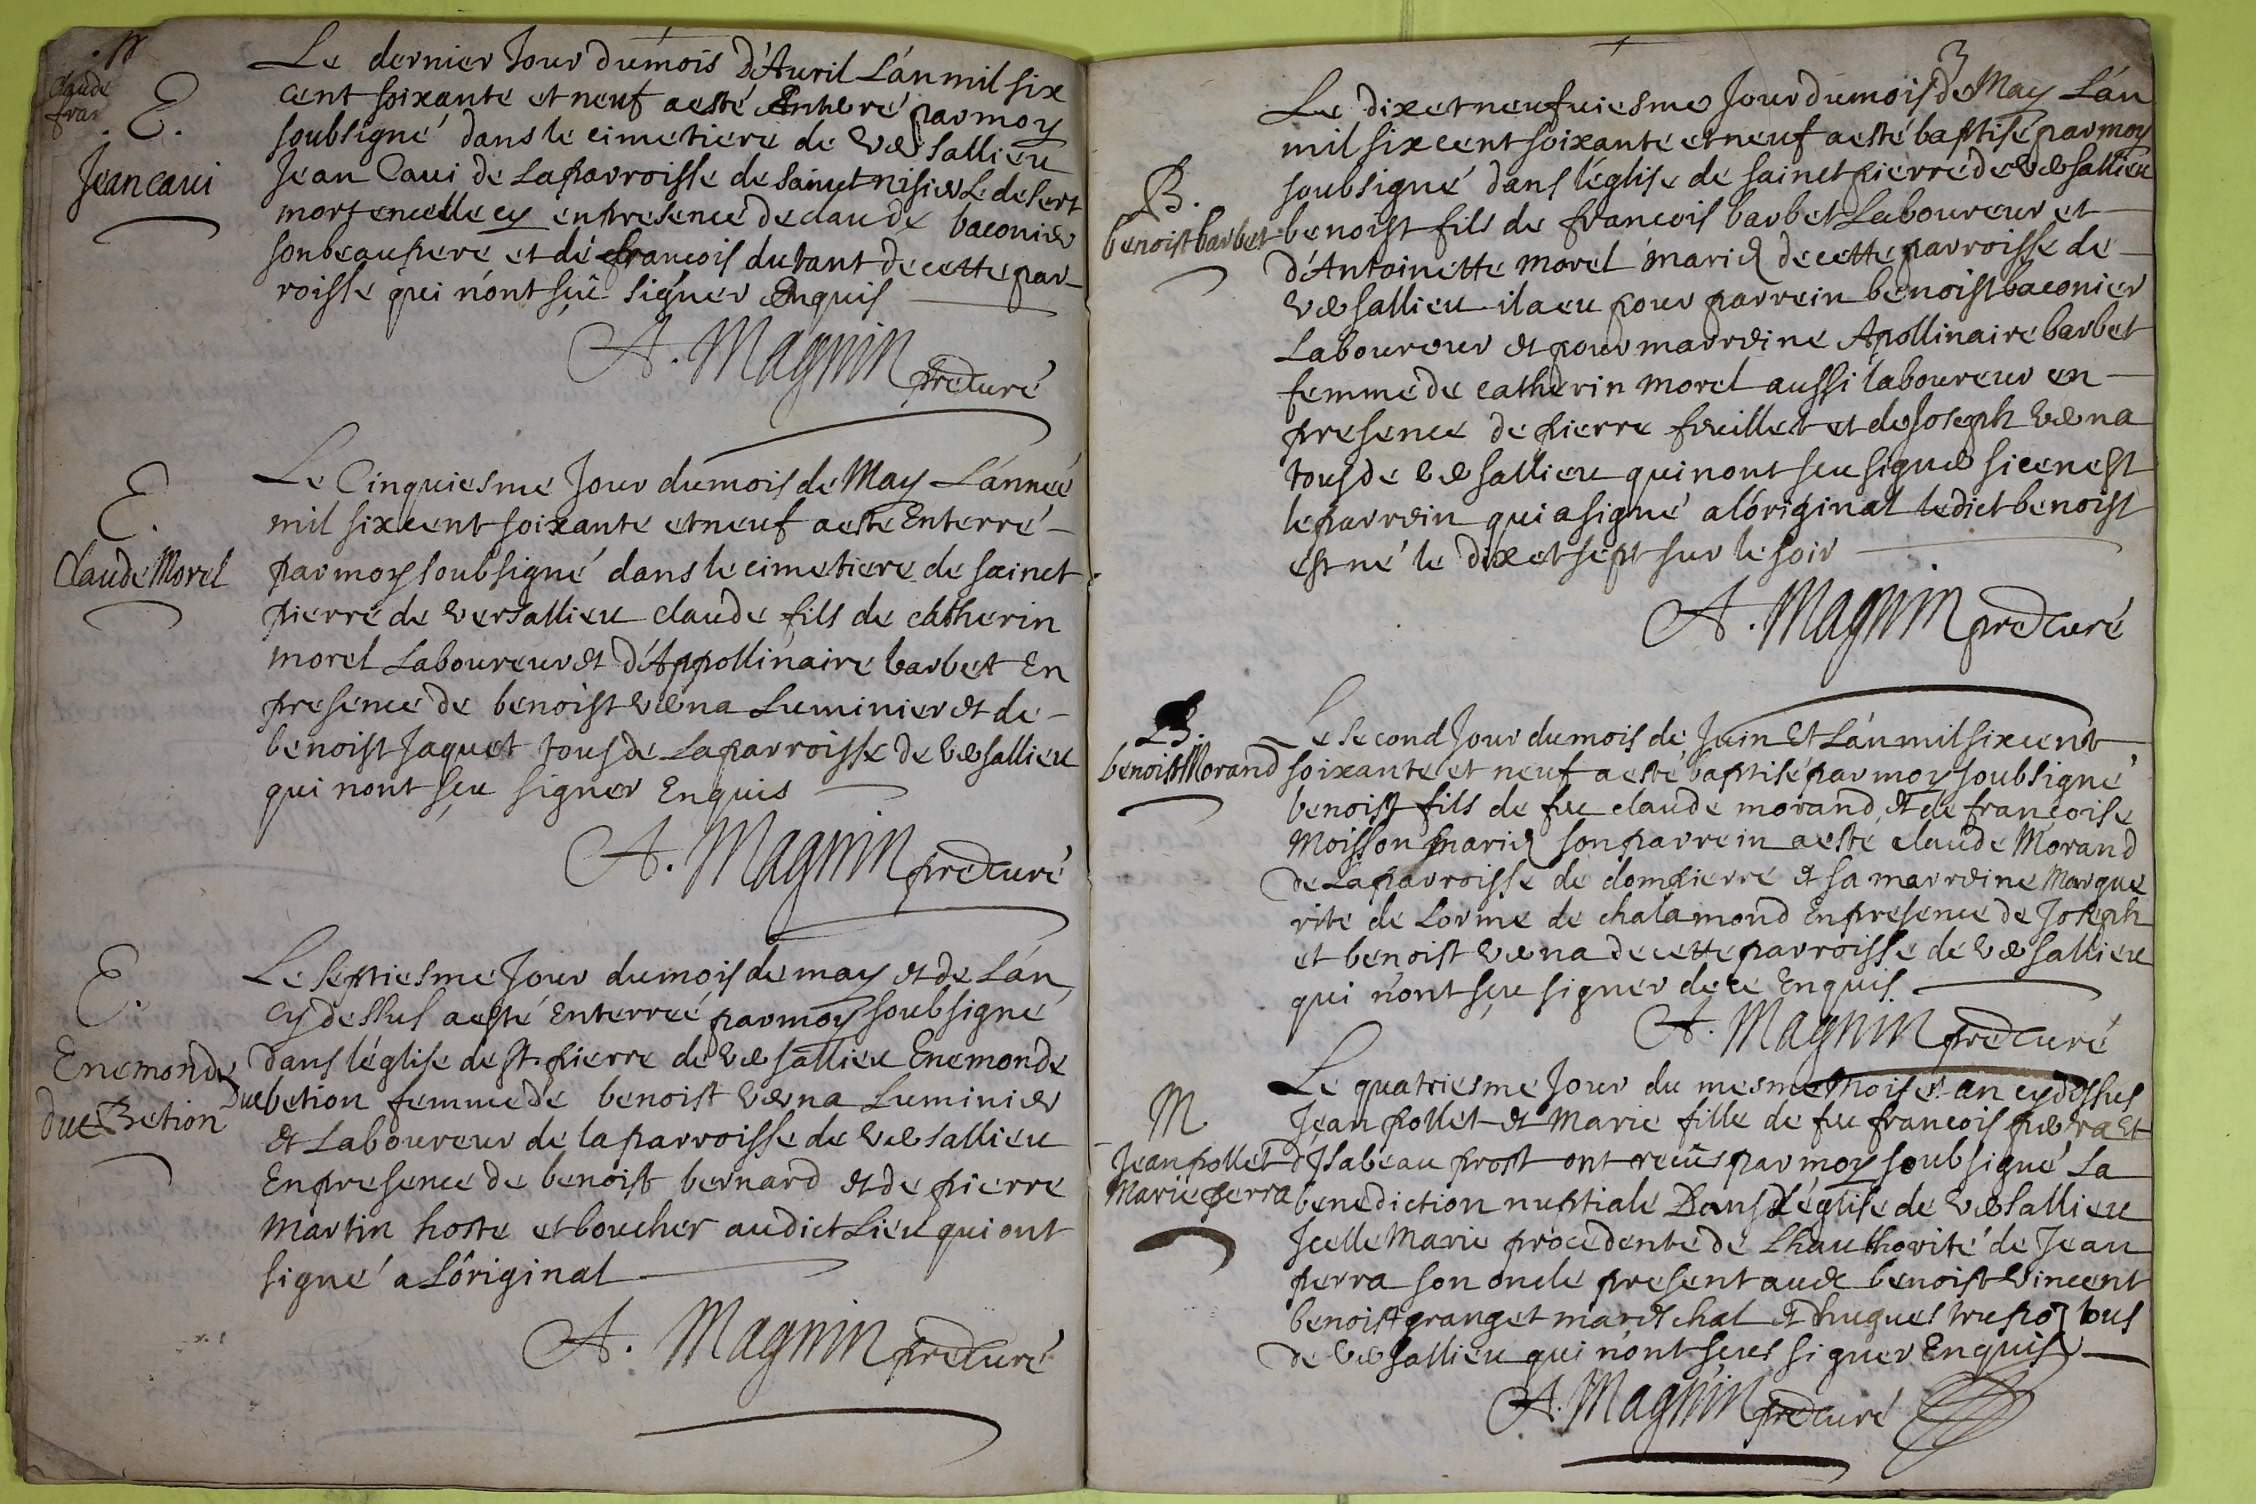 Claude
fran
.E.
Jean caui
Le dernier Jour du mois d'Auril L'án mil six
cent soixante et neuf a esté Enterré par moy
soubsigné dans le cimetiere de versallieu
Jean Caui de La parroisse de sainct nisier Le desert
mort en icelle cy en presence de claude baconier
son beaupere et de francois dutant de cette par-
roisse qui n'ont sçu signer Enquis
A. Magnin pretre Curé
E.
Claude Morel
Le Cinquiesme Jour du mois de May L'année
mil six cent soixante et neuf a esté Enterré
par moy soubsigné dans le cimetiere de sainct
pierre de versallieu claude fils de catherin
morel Laboureur et d'Appollinaire barbet En
presence de benoist verna Luminier et de
benoist Jaquet tous de La parroisse de versallieu
qui nont sçu signer Enquis
A. Magnin pretre Curé
E.
Enemonde
due Betion
Le septiesme Jour du mois de may et de L'án
cy dessus a esté Enterreé par moy soubsigné
dans l'église de st. pierre de versallieu Enemonde
Duebetion femme de benoist verna Luminier
et Laboureur de la parroisse de versallieu
En presence de benoist bernard et de pierre
Martin hoste et boucher audict Lieu qui ont
signé a L'original
A. Magnin pretre Curé
3
B.
benoist barbet
Le dix et neufuiesme Jour du mois de May L'án
mil six cent soixante et neuf a esté baptisé par moy
soubsigné dans l'église de sainct pierre de versallieu
benoist fils de francois barbet Laboureur et
d'Antoinette morel mariez de cette parroisse de
versallieu il a eu pour parrein benoist baconier
Laboureur et pour marreine Apollinaire barbet
femme de catherin morel aussi laboureur en
presence de pierre feuillet et de Joseph verna
tous de versallieu qui nont sceu signer si ce nest
le parrein qui a signé a l'original ledict benoist
est né le dix et sept sur le soir
A. Magnin pretre Curé
B.
benoist Morand
Le second Jour du mois de Juin Et L'án mil six cent
soixante et neuf a esté baptisé par moy soubsigné
benoist fils de feu claude morand et de françoise
Moisson mariez son parrein a esté claude Morand
de La parroisse de dompierre et sa marreine Margue
rite de Lorme de chalamond En presence de Joseph
et benoist verna de cette parroisse de versallieu
qui n'ont sçeu signer de ce Enquis
A. Magnin pretre Curé
M
Jean pollet
Marie perra
Le quatriesme Jour du mesme mois et an cy dessus
Jean pollet et Marie fille de feu francois perra Et
d'Isabeau prost ont reçus par moy soubsigné La
benediction nuptiale Dans L'église de versallieu
Icelle Marie procedente de L'hauthorité de Jean
perra son oncle present auec benoist Vincent
benoist granget maréchal et hugues trepoz tous
de versallieu qui n'ont sçeus signer Enquis
A. Magnin pretre curé